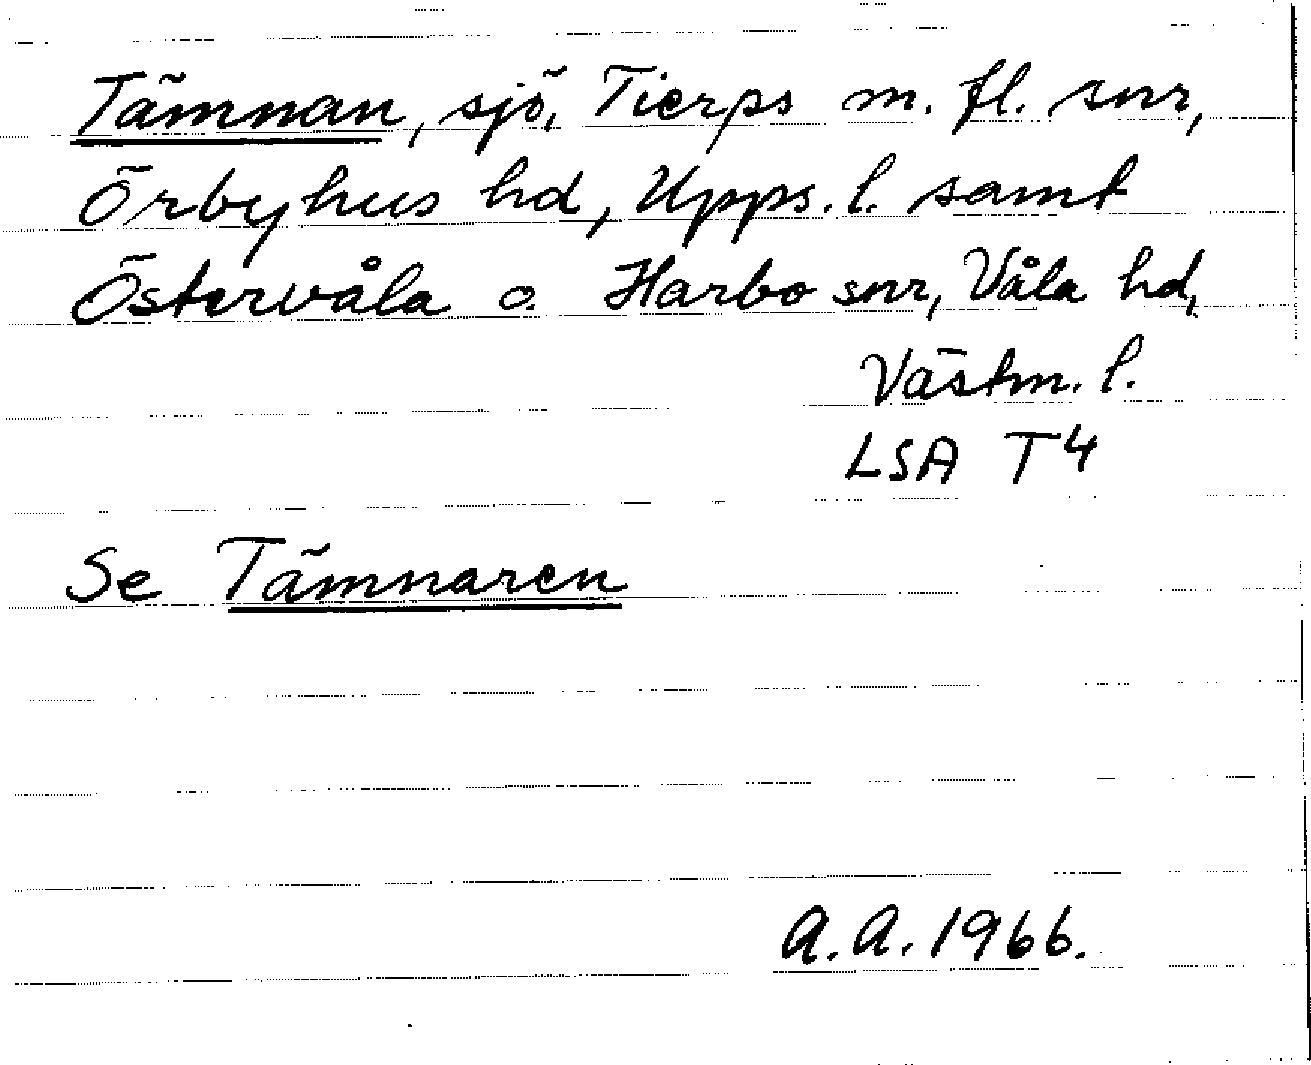 Tämnan, sjö, Tierps m. fl. snr,
Örbyhus hd, Upps. l. samt
Östervåla o. Harbo snr, Våla hd,
Västm. l.
LSA T4
Se Tämnaren
A.A. 1966.